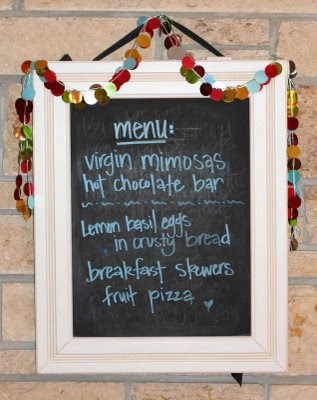 menu:
virgin mimosas
hot chocolate bar
Lemon basil eggs
in crusty bread
breakfast skewers
fruit pizza